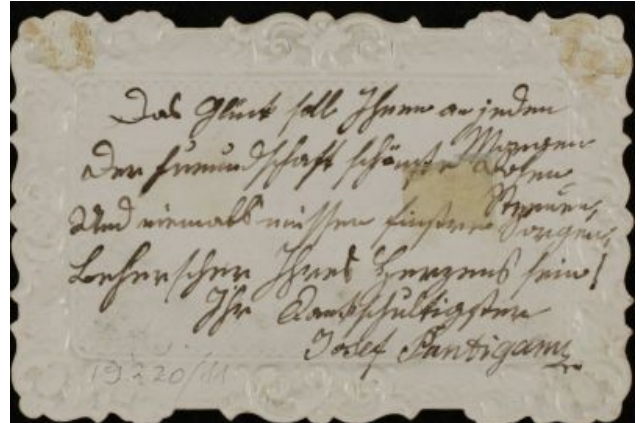 Das Glück soll Ihnen an jeden
Morgen
Der Freundschaft schönste Rosen
Streuen,
Und niemals müssen finstre Sorgen,
Beherscher Ihres Herzens sein!
Ihr dankschultigster
Josef Pantigam
19220/11